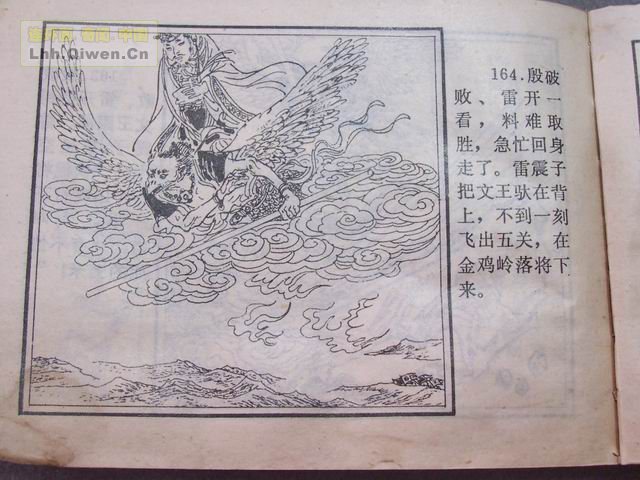 连环画·奇闻·中国
Lhh.Qiwen.Cn
164.殷破
败、雷开一
看，料难取
胜，急忙回身
走了。雷震子
把文王驮在背
上，不到一刻
飞出五关，在
金鸡岭落将下
来。